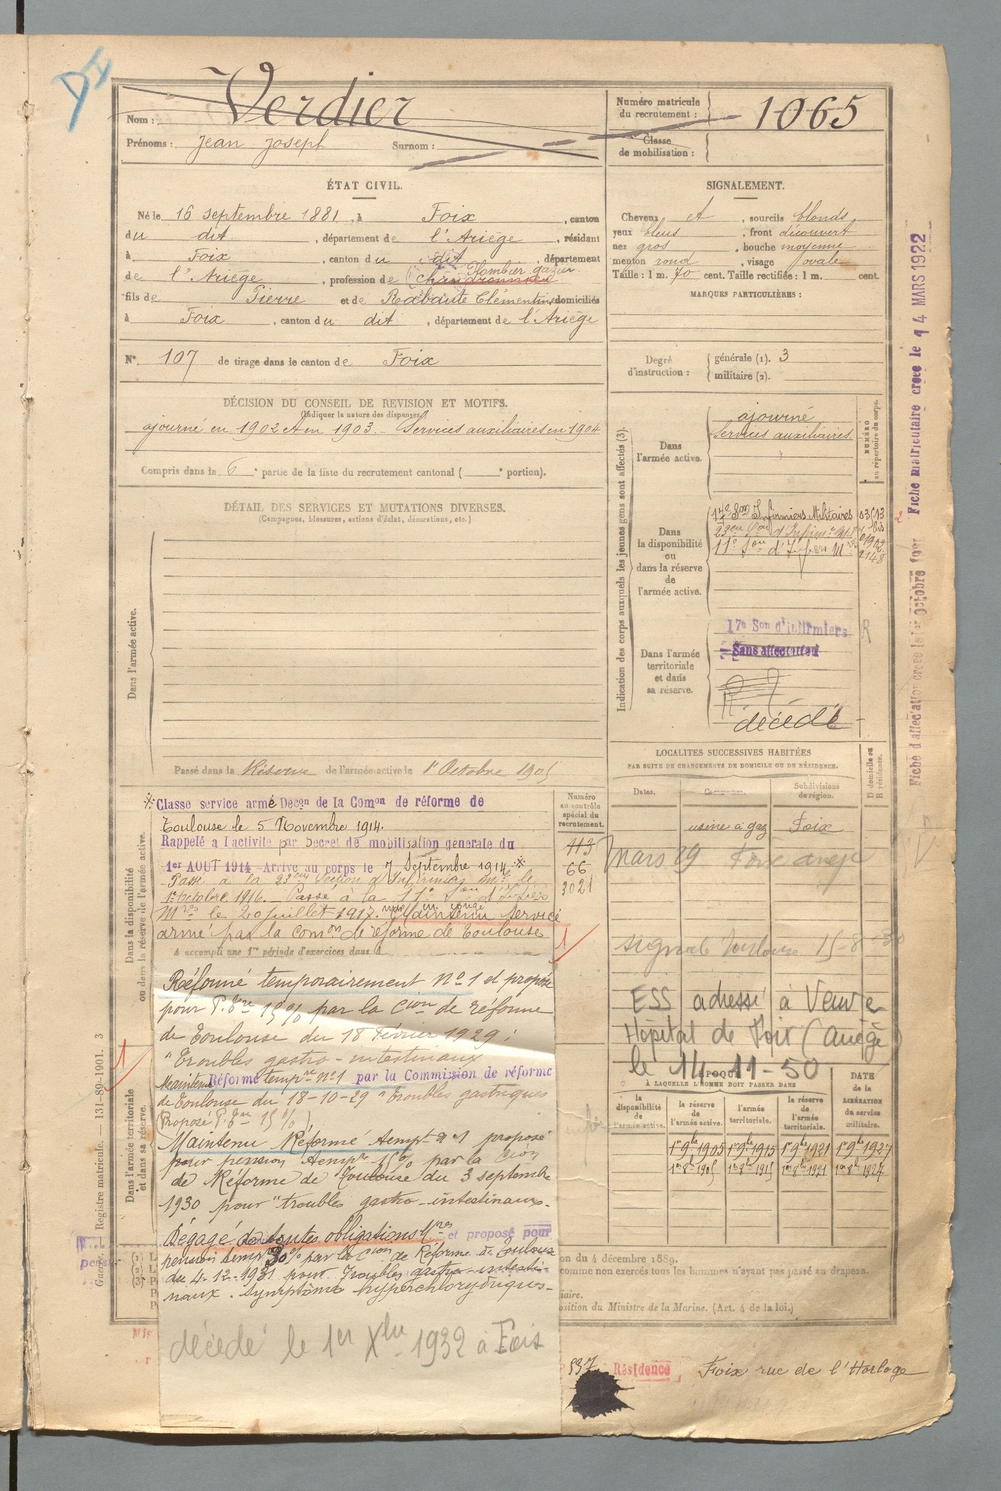 Nom : Verdier
Prénoms : Jean Joseph Surnom :
Numéro matricule
du recrutement :
1065
Classe
de mobilisation :
ÉTAT CIVIL.
Né le 16 septembre 1881, à Foix, canton
du dit, département de l'Ariège, résidant
à Foix, canton du dit, département
Plombier gazier
de l'Ariège, profession de
fils de Pierre et de Rabaute Clémentine, domiciliés
à Foix, canton du dit, département de l'Ariège
N° 107 de tirage dans le canton de Foix
SIGNALEMENT.
Cheveux et, sourcils blonds
yeux bleus, front découvert
nez gros, bouche moyenne
menton rond, visage ovale
Taille : 1 m. 70 cent. Taille rectifiée : 1 m. cent.
MARQUES PARTICULIÈRES :
Degré
d'instruction :
générale (1). 3
militaire (2).
DÉCISION DU CONSEIL DE REVISION ET MOTIFS.
(Indiquer la nature des dispenses)
ajourné en 1902 et en 1903 - Services auxiliaires en 1904
Compris dans la 6e partie de la liste du recrutement cantonal ( e portion).
DÉTAIL DES SERVICES ET MUTATIONS DIVERSES.
(Campagnes, blessures, actions d'éclat, décorations, etc.)
Dans l'armée active.
Passé dans la Réserve de l'armée active le 1er Octobre 1905
Indication des corps auxquels les jeunes gens sont affectés (3).
NUMÉRO
au répertoire du corps.
Dans
l'armée active.
ajourné
Services auxiliaires
Dans
la disponibilité
ou
dans la réserve
de
l'armée active.
17e Son Infirmiers Militaires
Dans l'armée
territoriale
et dans
sa réserve.
17e Son d'Infirmiers R
Sans affectation
décédé
Fiche matriculaire créée le 14 MARS 1922
LOCALITÉS SUCCESSIVES HABITÉES
PAR SUITE DE CHANGEMENTS DE DOMICILE OU DE RÉSIDENCE.
Dates. Communes. Subdivisions
de région.
D domicile ou
R résidence.
usine à gaz Foix
Mars 29
signalé Toulouse 15-8-30
ESS adressé à Veuve
Hôpital de Foix (Ariège)
le 14-11-50
ÉPOQUE
À LAQUELLE L'HOMME DOIT PASSER DANS
DATE
de la
LIBÉRATION
du service
militaire.
la
disponibilité
de l'armée active.
la réserve
de
l'armée active.
l'armée
territoriale.
la réserve
de
l'armée
territoriale.
1er 9bre 1905 1er 9bre 1915 1er 9bre 1921 1er 9bre 1927
1er 8bre 1905 1er 8bre 1915 1er 8bre 1921 1er 8bre 1927
Dans la disponibilité
ou dans la réserve de l'armée active.
Numéro
au contrôle
spécial du
recrutement.
113
66
3021
Classé service armé Décon de la Comon de réforme de
Toulouse le 5 Novembre 1914.
Rappelé à l'activité par Décret de mobilisation générale du
1er AOUT 1914 Arrivé au corps le 7 Septembre 1914.
Passé à la 23ème Section d'Infirmiers Mres le
1er Octobre 1916. Passé à la
le 20 juillet 1917. Maintenu Service
armé par la comon de réforme de Toulouse
A accompli une 1re période d'exercices dans l
Réformé temporairement n° 1 et proposé
pour P. Tre 15% par la Cion de réforme
de Toulouse du 18 Février 1929 :
"Troubles gastro-intestinaux
Maintenu Réformé tempre n° 1 par la Commission de réforme
de Toulouse du 18-10-29 "Troubles gastriques
(Proposé P. Tre 15%)
Maintenu Réformé tempt n° 1 proposé
pour pension tempre par la Cion
de Réforme de Toulouse du 3 septembre
1930 pour "troubles gastro-intestinaux.
Dégagé de toutes obligations Mres et proposé pour
pension tempre 30% par la Cion de Réforme de Toulouse
du 4-12-1931 pour Troubles gastro-intesti-
naux. Symptômes hyperchlorydriques.
décédé le 1er Xbre 1932 à Foix
Dans l'armée territoriale
et dans sa réserve.
Registre matricule. 131-89-1901. 3
on du 4 décembre 1889.
comme non exercés tous les hommes n'ayant pas passé au drapeau.
iaire.
osition du Ministre de la Marine. (Art. 4 de la loi.)
Résidence Foix rue de l'Horloge